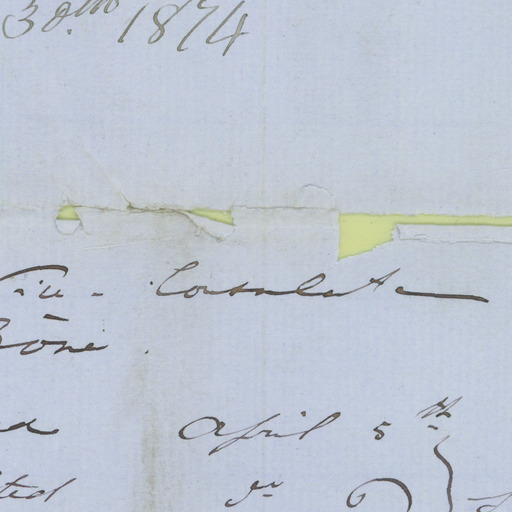 30th 1874
Vice-Consulate
Bône.
April 5th
do 6